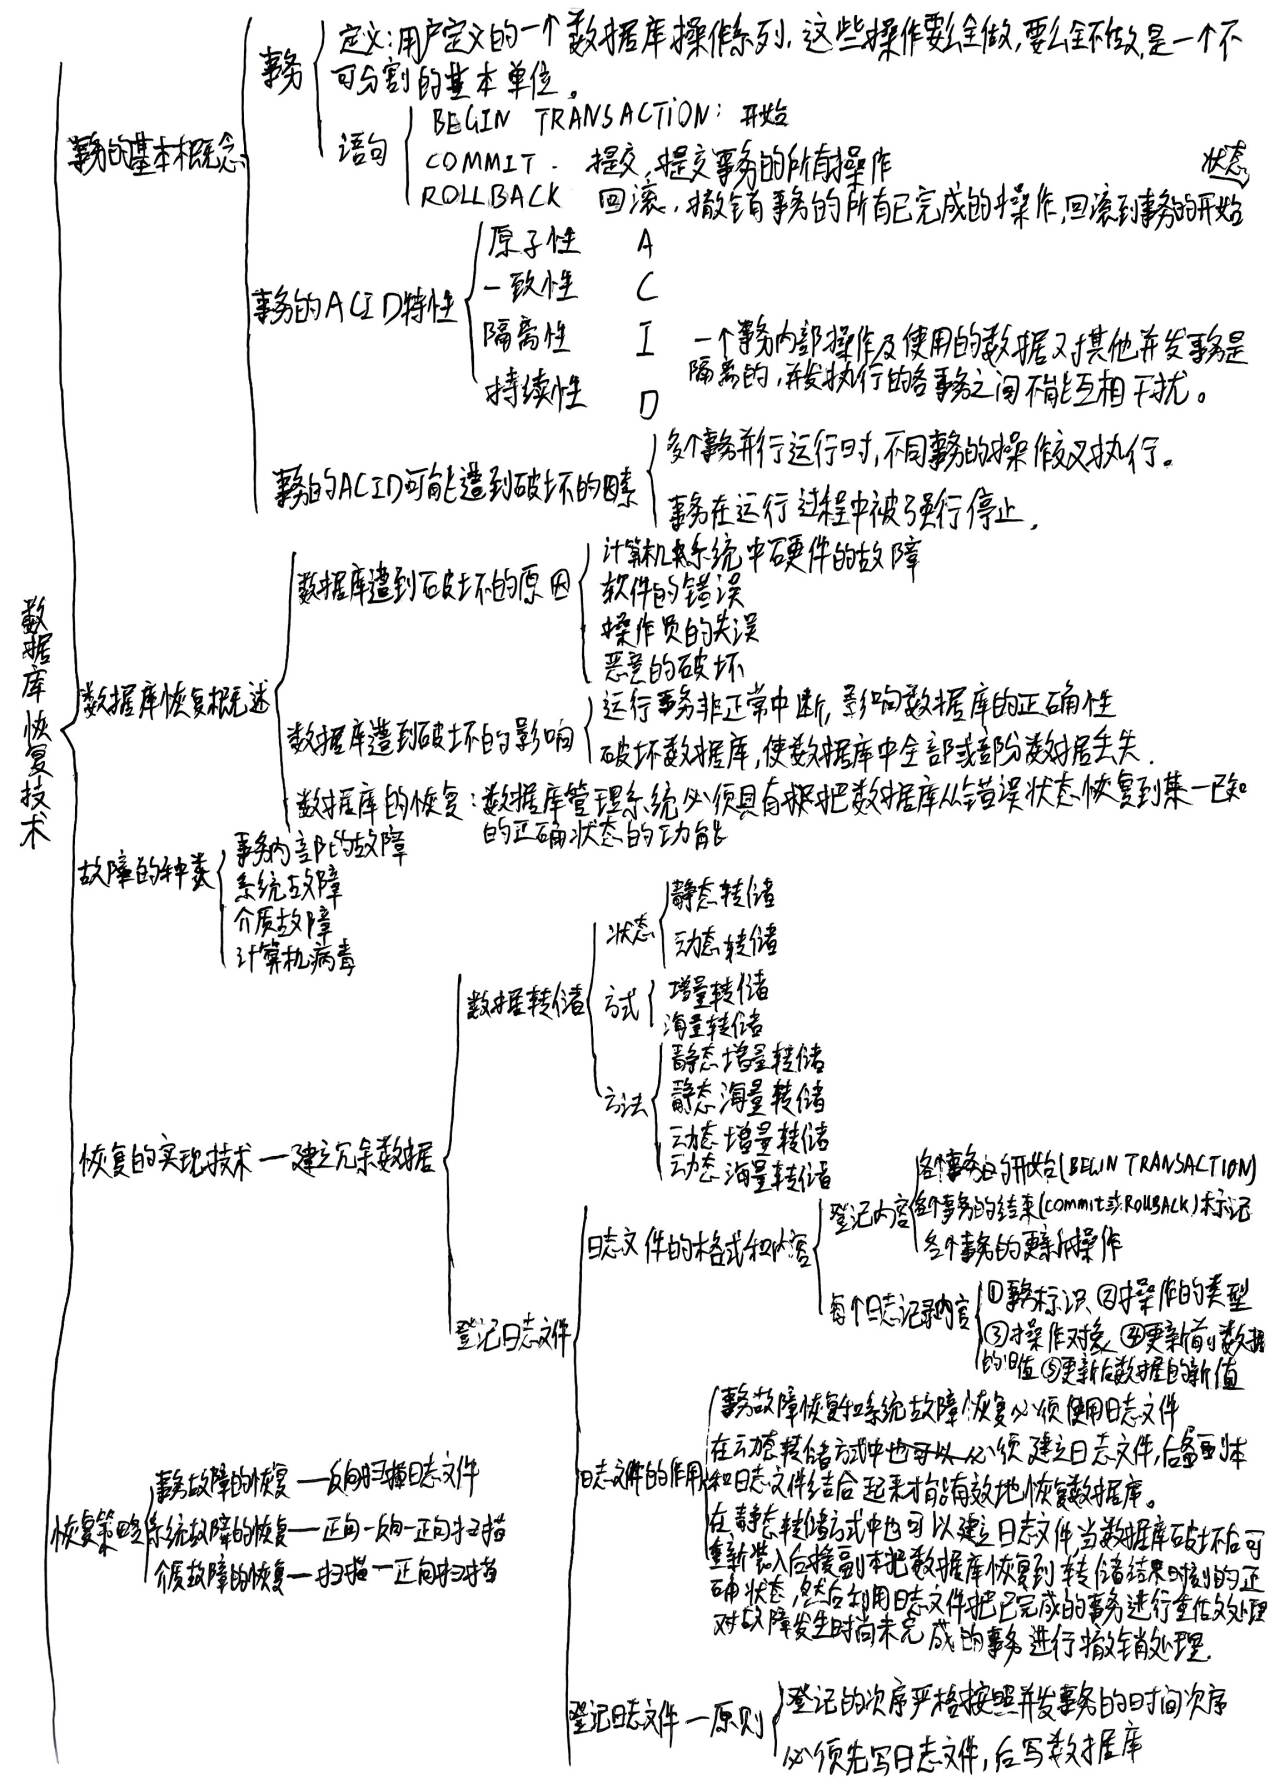 数据库恢复技术
事务的基本概念
事务
定义:用户定义的一个数据库操作系列,这些操作要么全做,要么全不做,是一个不
可分割的基本单位。
语句
BEGIN TRANSACTION: 开始
COMMIT. 提交,提交事务的所有操作
ROLLBACK 回滚,撤销事务的所有已完成的操作,回滚到事务的开始
状态
事务的ACID特性
原子性 A
一致性 C
隔离性 I 一个事务内部操作及使用的数据对其他并发事务是
隔离的,并发执行的各事务之间不能互相干扰。
持续性 D
事务的ACID可能遭到破坏的因素
多个事务并行运行时,不同事务的操作交叉执行。
事务在运行过程中被强行停止.
数据库恢复概述
数据库遭到破坏的原因
计算机系统中硬件的故障
软件的错误
操作员的失误
恶意的破坏
数据库遭到破坏的影响
运行事务非正常中断,影响数据库的正确性
破坏数据库,使数据库中全部或部分数据丢失.
数据库的恢复:数据库管理系统必须具有把数据库从错误状态恢复到某一已知
的正确状态的功能
故障的种类
事务内部的故障
系统故障
介质故障
计算机病毒
恢复的实现技术—建立冗余数据
数据转储
状态
静态转储
动态转储
方式
增量转储
海量转储
方法
静态增量转储
静态海量转储
动态增量转储
动态海量转储
登记日志文件
日志文件的格式和内容
登记内容
各个事务的开始(BEGIN TRANSACTION)
各个事务的结束(COMMIT或ROLLBACK)标记
各个事务的更新操作
每个日志记录内容
①事务标识 ②操作的类型
③操作对象 ④更新前数据
的旧值 ⑤更新后数据的新值
日志文件的作用
事务故障恢复和系统故障恢复必须使用日志文件
在动态转储方式中也可以必须建立日志文件,后备副本
和日志文件结合起来才能有效地恢复数据库。
在静态转储方式中也可以建立日志文件,当数据库破坏后可
重新装入后援副本把数据库恢复到转储结束时刻的正
确状态,然后利用日志文件把已完成的事务进行重做处理
对故障发生时尚未完成的事务进行撤销处理.
登记日志文件—原则
登记的次序严格按照并发事务的时间次序
必须先写日志文件,后写数据库
恢复策略
事务故障的恢复—反向扫描日志文件
系统故障的恢复—正向—反向—正向扫描
介质故障的恢复—扫描—正向扫描